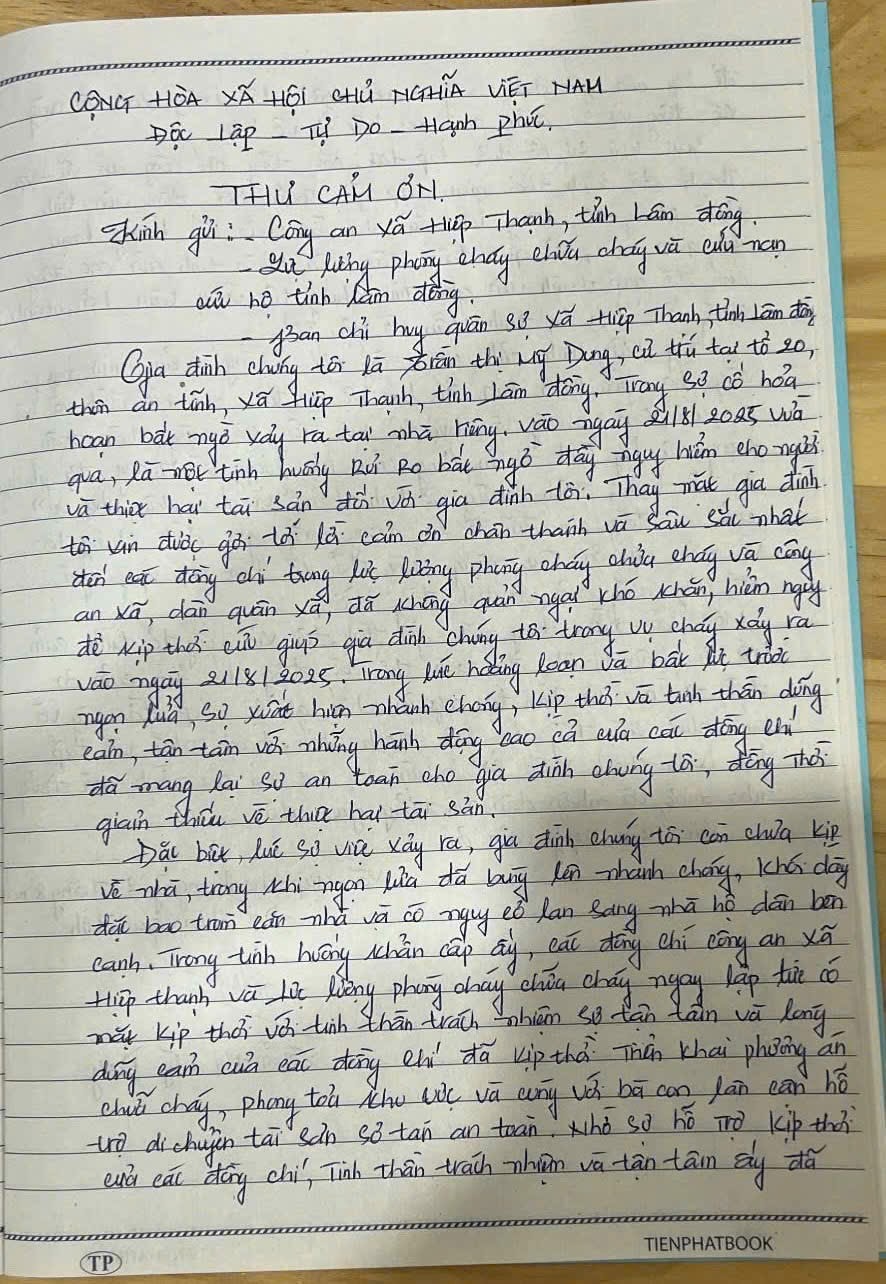 CỘNG HÒA XÃ HỘI CHỦ NGHĨA VIỆT NAM
Độc Lập - Tự Do - Hạnh Phúc.
THƯ CẢM ƠN.
Kính gửi: - Công an xã Hiệp Thạnh, tỉnh Lâm đồng.
- Lực lượng phòng cháy chữa cháy và cứu nạn
cứu hộ tỉnh Lâm đồng.
- Ban chỉ huy quân sự xã Hiệp Thạnh, tỉnh Lâm đồng
Gia đình chúng tôi là Trần thị Mỹ Dung, cư trú tại tổ 20,
thôn an tĩnh, xã Hiệp Thạnh, tỉnh Lâm đồng. Trong sự cố hỏa
hoạn bất ngờ xảy ra tại nhà riêng. vào ngày 21/8/2025 vừa
qua, là một tình huống rủi ro bất ngờ đầy nguy hiểm cho người
và thiệt hại tài sản đối với gia đình tôi. Thay mặt gia đình
tôi xin được gởi tới lời cảm ơn chân thành và sâu sắc nhất
đến các đồng chí trong lực lượng phòng cháy chữa cháy và công
an xã, dân quân xã, đã không quản ngại khó khăn, hiểm nguy
để kịp thời cứu giúp gia đình chúng tôi trong vụ cháy xảy ra
vào ngày 21/8/2025. Trong lúc hoảng loạn và bất lực trước
ngọn lửa, sự xuất hiện nhanh chóng, kịp thời và tinh thần dũng
cảm, tận tâm với những hành động cao cả của các đồng chí
đã mang lại sự an toàn cho gia đình chúng tôi, đồng thời
giảm thiểu về thiệt hại tài sản.
Đặc biệt, lúc sự việc xảy ra, gia đình chúng tôi còn chưa kịp
về nhà, trong khi ngọn lửa đã bùng lên nhanh chóng, khói dày
đặc bao trùm căn nhà và có nguy cơ lan sang nhà hộ dân bên
cạnh. Trong tình huống khẩn cấp ấy, các đồng chí công an xã
Hiệp thạnh và lực lượng phòng cháy chữa cháy ngay lập tức có
mặt kịp thời với tinh thần trách nhiệm sự tận tâm và lòng
dũng cảm của các đồng chí đã kịp thời triển khai phương án
chữa cháy, phong tỏa khu vực và cùng với bà con lân cận hỗ
trợ di chuyển tài sản sơ tán an toàn. Nhờ sự hỗ trợ kịp thời
của các đồng chí, Tinh thần trách nhiệm và tận tâm ấy đã
TP
TIENPHATBOOK